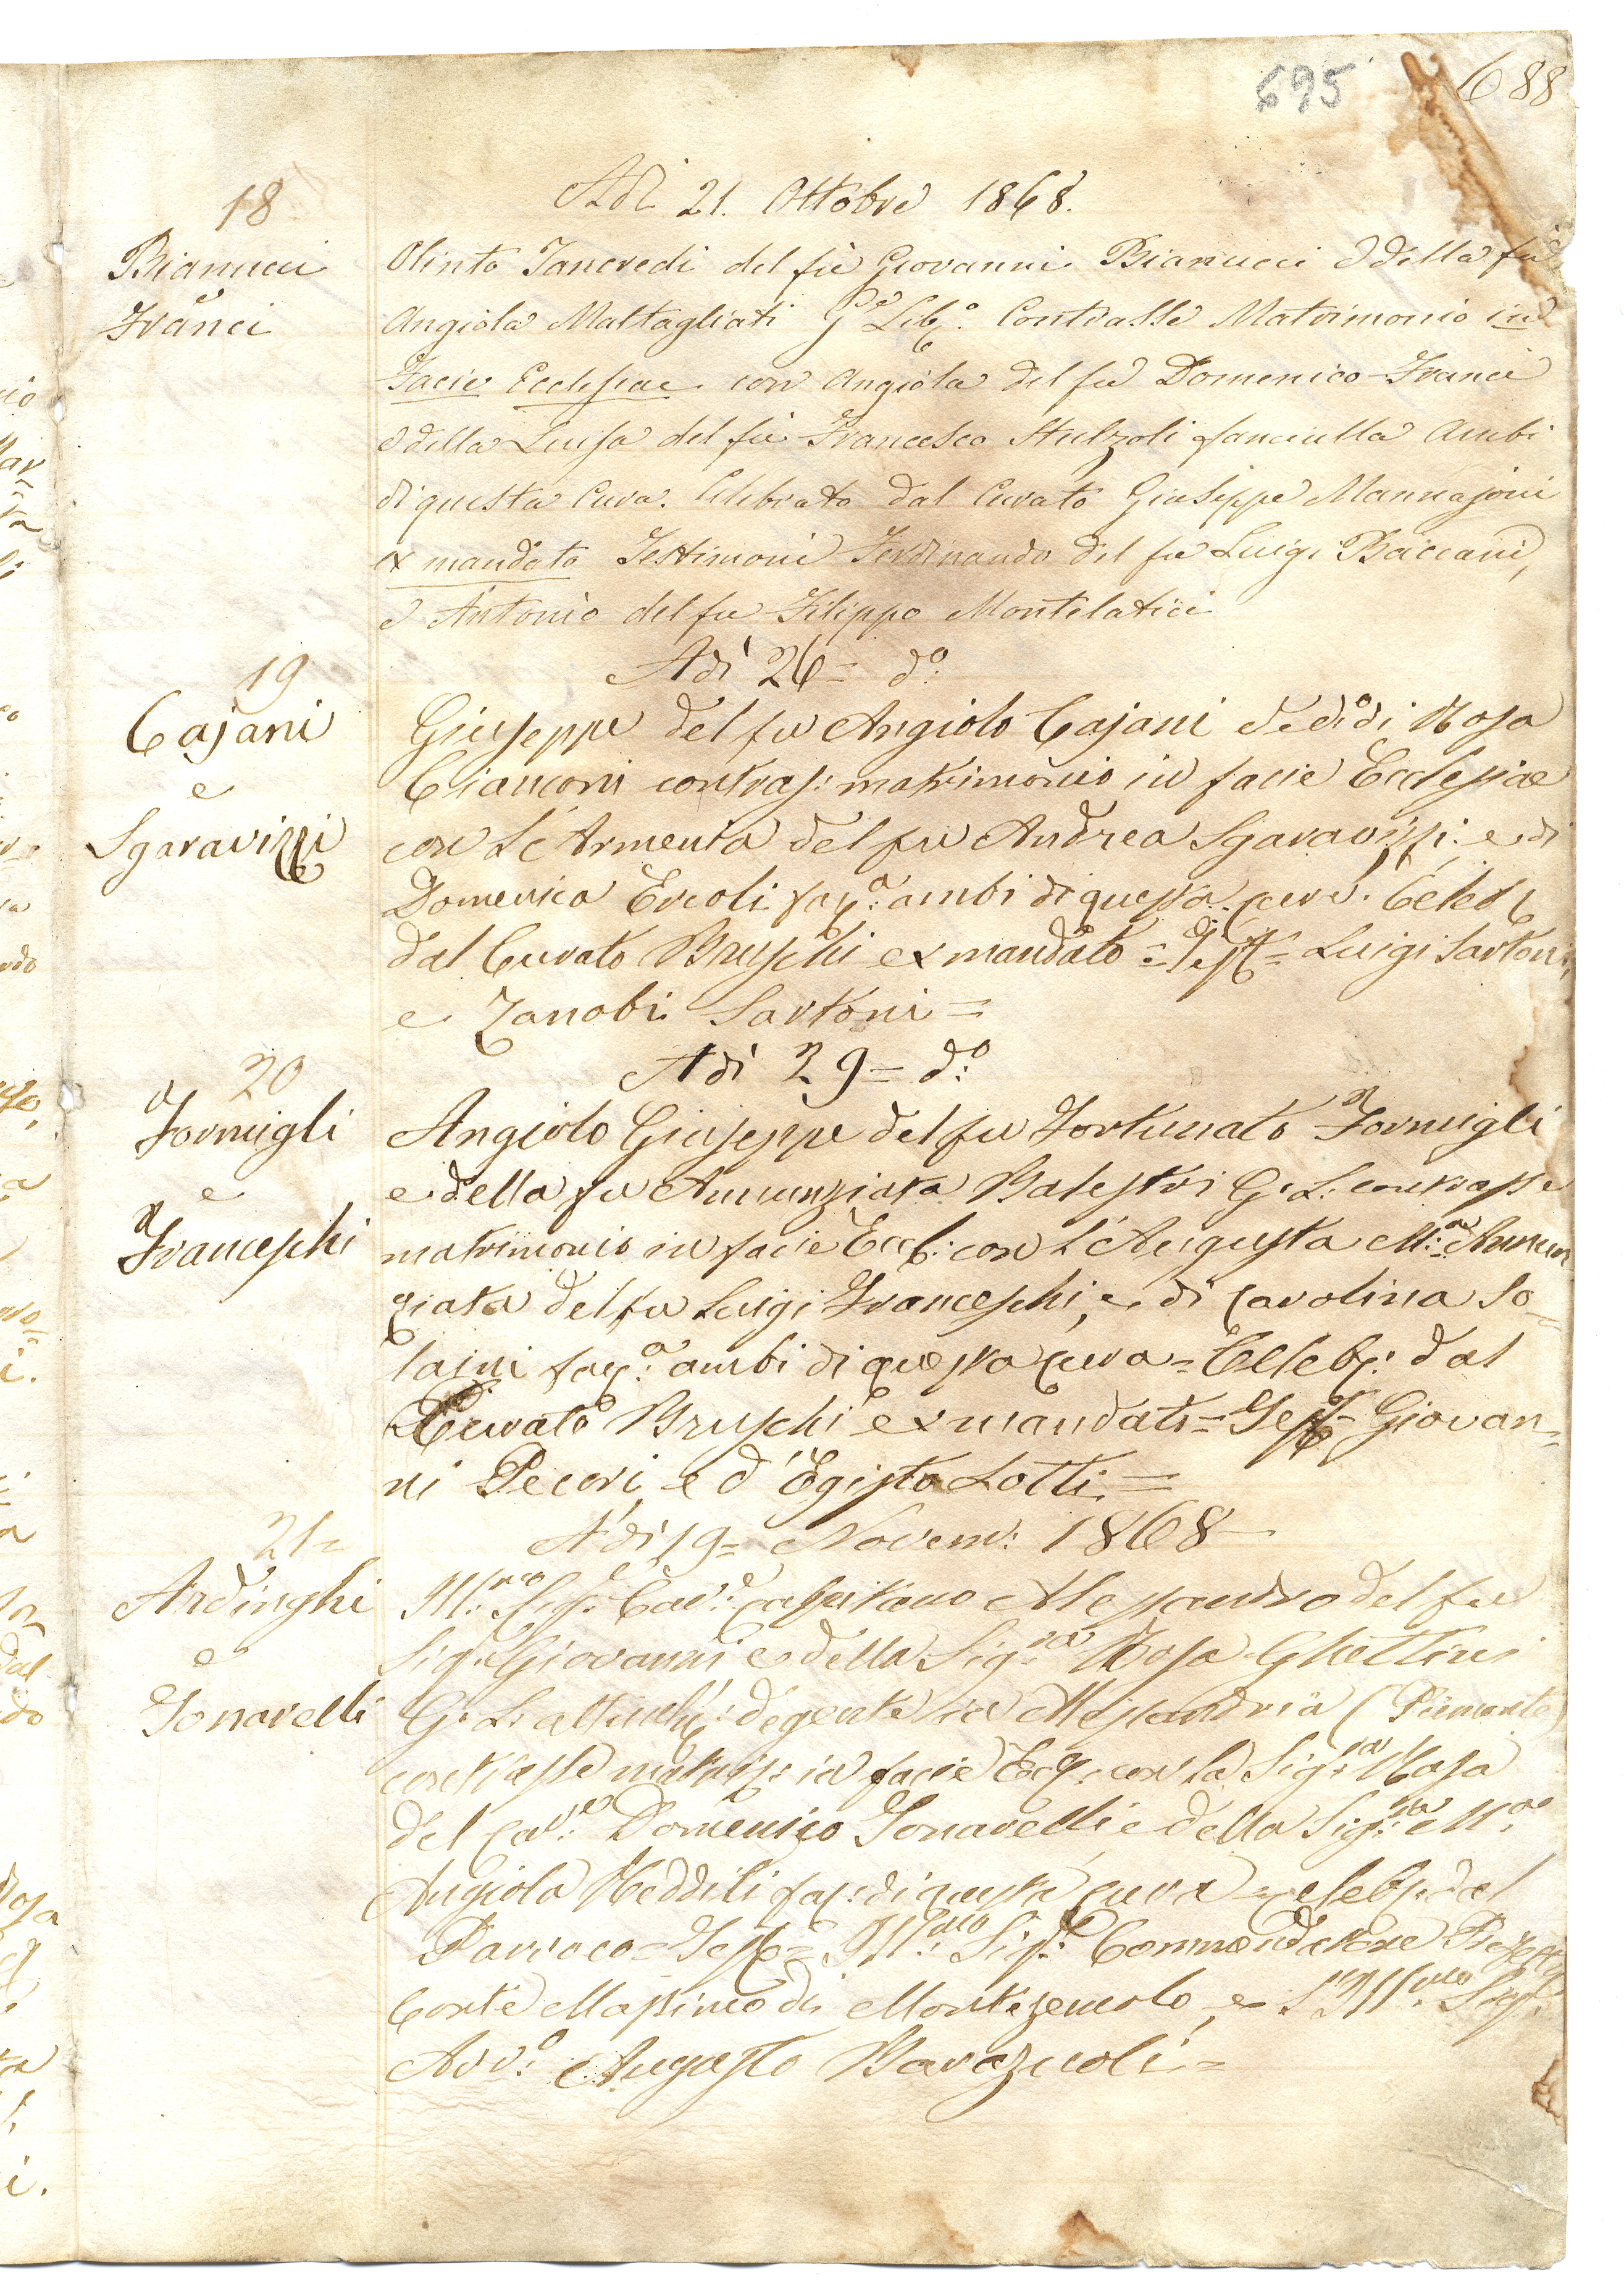 695
688
18
Adì 21. Ottobre 1868.
Bianucci
e
Franci
Olinto Tancredi del fù Giovanni Bianucci e della fù
Angiola Maltagliati G.e Lib.o Contrasse Matrimonio in
Facie Ecclesiae con Angiola del fu Domenico Franci
e della Luisa del fù Francesco Stulzoli fanciulla Ambi
di questa Cura. Celebrato dal Curato Giuseppe Mannajoni
ex mandato Testimoni Ferdinando del fu Luigi Baccani,
e Antonio del fu Filippo Montelatici
19
Adì 26= d.o
Cajani
e
Sgaravizzi
Giuseppe del fu Angiolo Cajani e di Rosa
Cianconi contras: matrimonio in facie Ecclesiae
con L'Armenia del fu Andrea Sgaravizzi: e di
Domenica Ercoli fan:a ambi di questa cura. Celeb
dal Curato Bruschi ex mandato = Test = Luigi Sartoni,
e Zanobi Sartoni =
20
Adì 29= d.o
Formigli
e
Franceschi
Angiolo Giuseppe del fu Fortunato Formigli
e della fu Annunziata Balestri G. L: contrasse
matrimonio in facie Eccl: con L'Augusta M:a Annun
ziata del fu Luigi Franceschi, e di Carolina So=
laini fan:a ambi di questa cura = Celeb: dal
Curato Bruschi ex mandato = Test = Giovan=
ni Pecori, e d'Egisto Lotti =
21=
A'dì 19= Novem: 1868
Ardinghi
e
Tonarelli
Ill:mo Sig:e Cav:e Capitano Alessandro del fu
Sig: Giovanni e della Sig:ra Rosa Ghettini
G. L: degente in Alessandria (Piemonte)
contrasse matrim: in facie Eccl: con la Sig:ra Rosa
del Cav:e Domenico Tonarelli e della Sig:ra M:a
Angiola Redditi fan: di questa cura = celeb: dal
Parroco = Test = Ill:mo Sig:e Commendatore Prefetto
Conte Massimo di Montezemolo, e L'Ill:mo Sig:
Avv:o Augusto Barazzuoli =